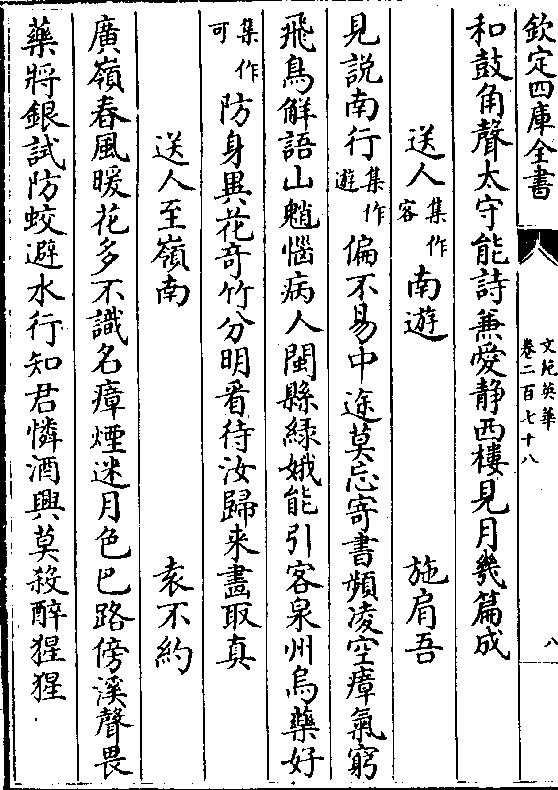 欽定四庫全書
文苑英華
卷二百七十八
八
和鼓角聲太守能詩兼愛静西樓見月幾篇成
送人集作客南遊 施肩吾
見説南行集作遊偏不易中途莫忘寄書頻凌空瘴氣窮
飛鳥解語山魈惱病人閩縣緑娥能引客泉州烏藥好
集作可防身異花奇竹分明看待汝歸来畫取真
送人至嶺南 袁不約
廣嶺春風暖花多不識名瘴煙迷月色巴路傍溪聲畏
藥將銀試防蛟避水行知君憐酒興莫殺醉猩猩